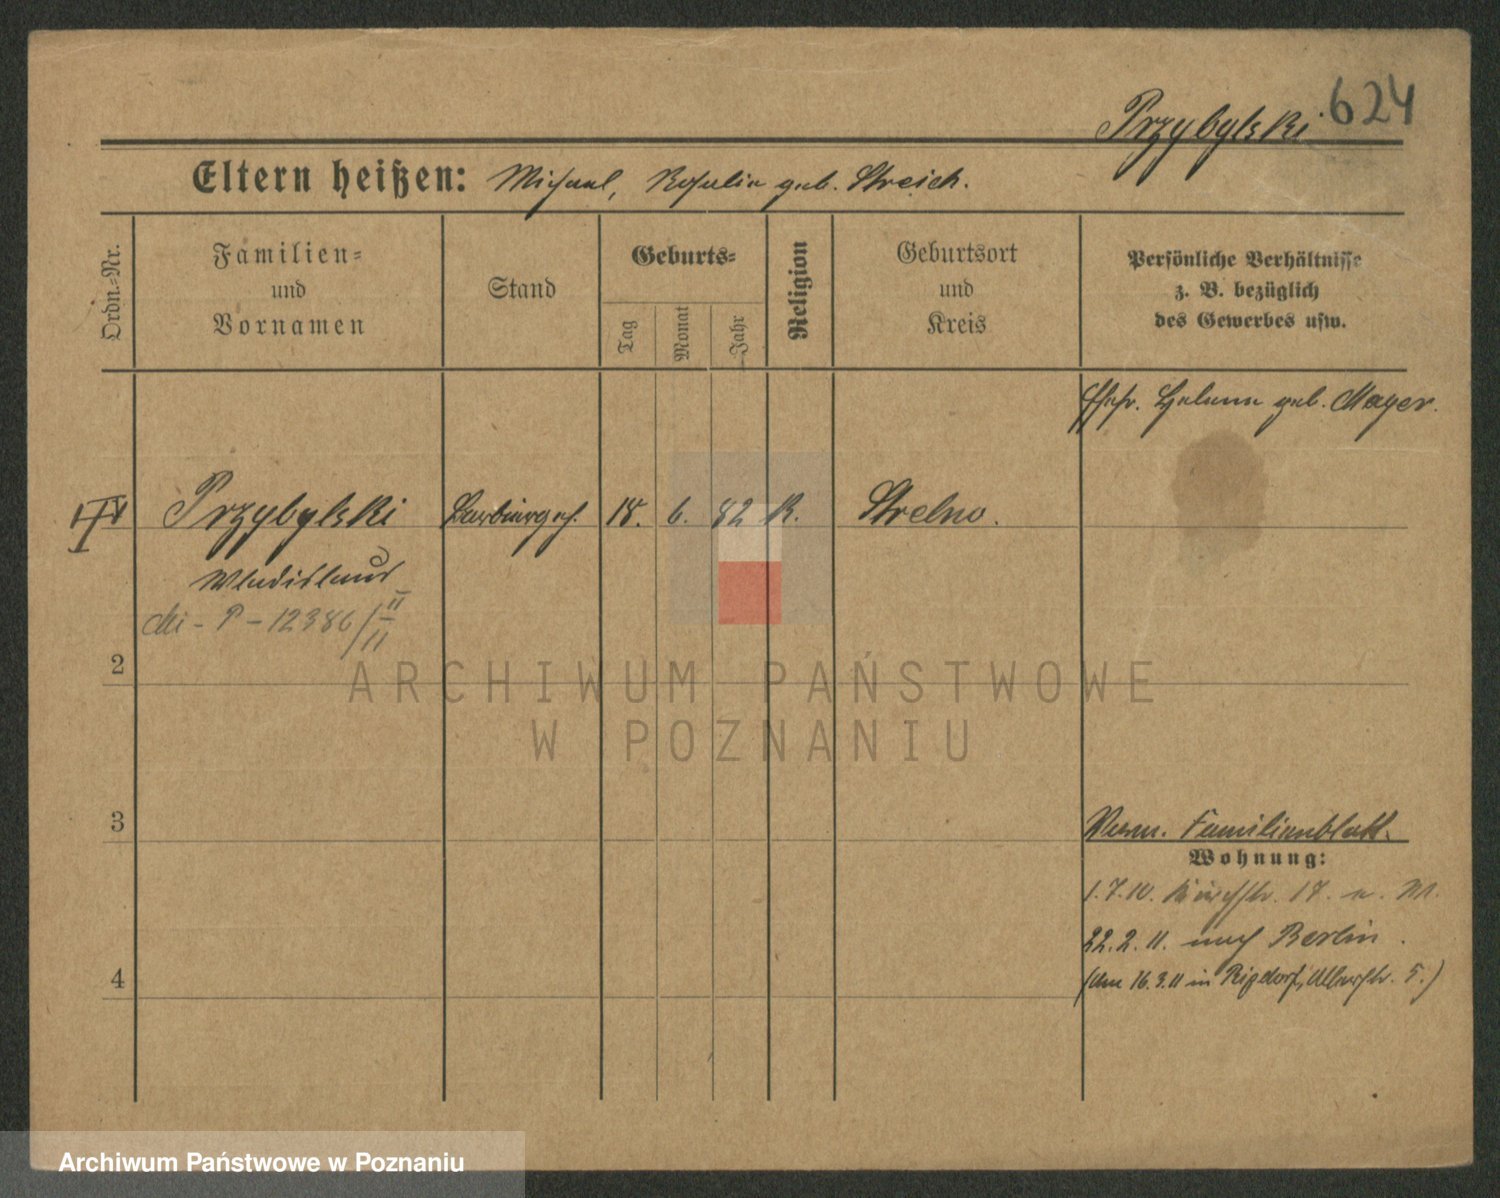 Przybylski
624
Eltern heißen: Michael, Rosalie geb. Streich.
Ordn.-Nr.
Familien=
und
Vornamen
Stand
Geburts=
Tag
Monat
Jahr
Religion
Geburtsort
und
Kreis
Persönliche Verhältnisse
z. B. bezüglich
des Gewerbes usw.
Ehefr. Helene geb. Mayer.
Przybylski
Barbiergeh.
18.
6.
82
K.
Strelno.
Wladislaus
P - 12386/II
2
3
4
Familienblatt.
Wohnung:
1.7.10. 17.
22.2.11. nach Berlin.
(Am 16.3.11 in Rixdorf, 5.)
ARCHIWUM PAŃSTWOWE
W POZNANIU
Archiwum Państwowe w Poznaniu